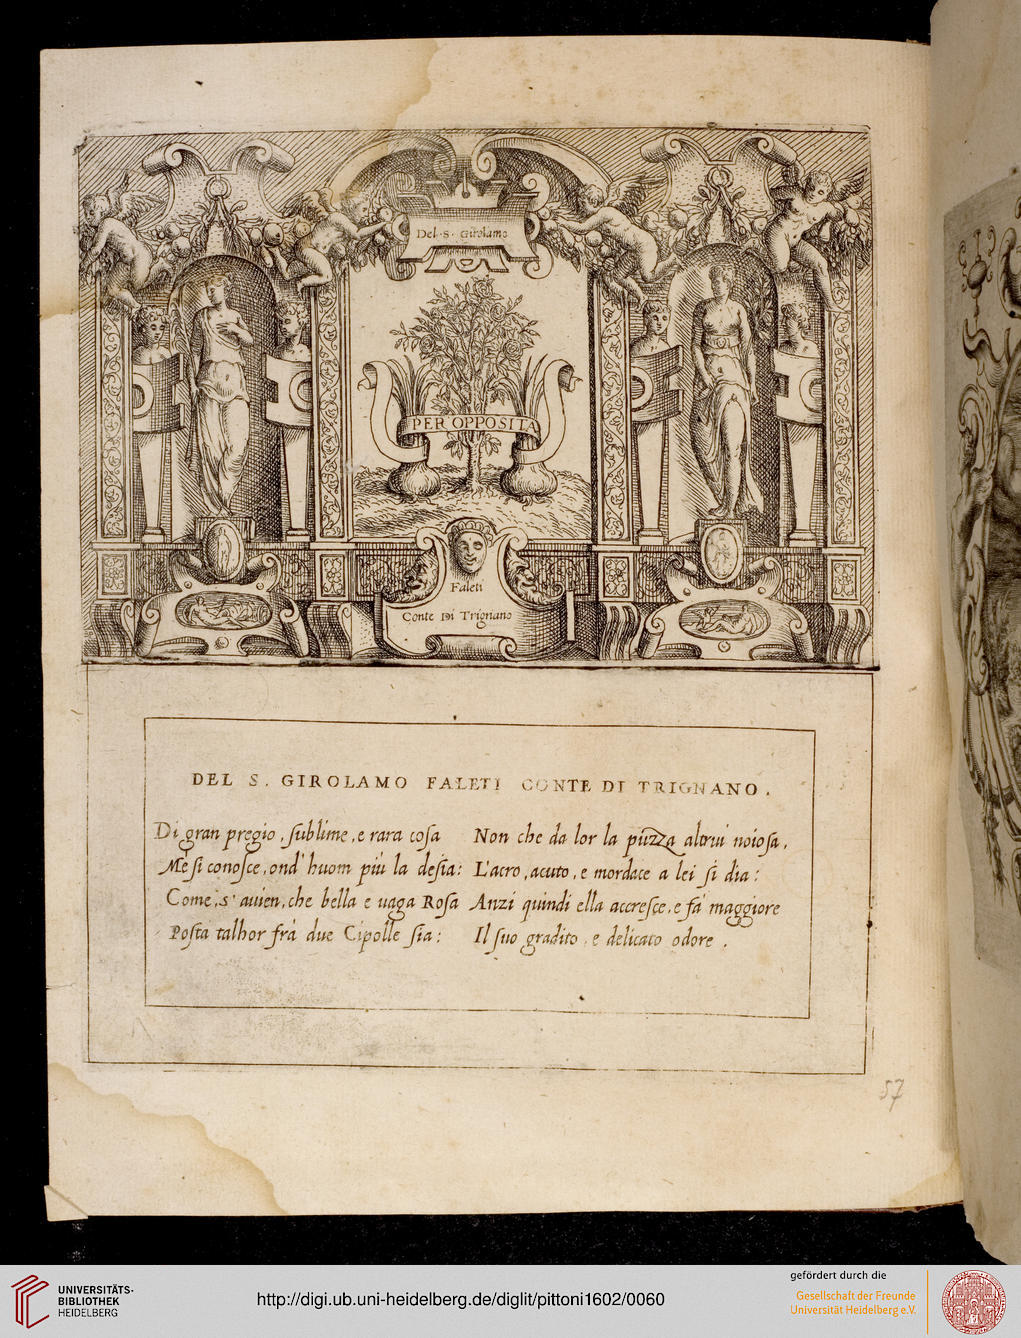 Del · S · Girolamo
PER OPPOSITA
Faleti
Conte Di Trignano
DEL S. GIROLAMO FALETI CONTE DI TRIGNANO.
Di gran pregio, ſublime, e rara coſa
Me ſi conoſce, ond' huom più la deſia:
Come, s' auuien, che bella e uaga Roſa
Poſta talhor frà due Cipolle ſia:
Non che da lor la puzza altrui noioſa,
L'acro, acuto, e mordace a lei ſi dia:
Anzi quindi ella accreſce, e fá maggiore
Il ſuo gradito e delicato odore.
57
UNIVERSITÄTS-
BIBLIOTHEK
HEIDELBERG
http://digi.ub.uni-heidelberg.de/diglit/pittoni1602/0060
gefördert durch die
Gesellschaft der Freunde
Universität Heidelberg e.V.